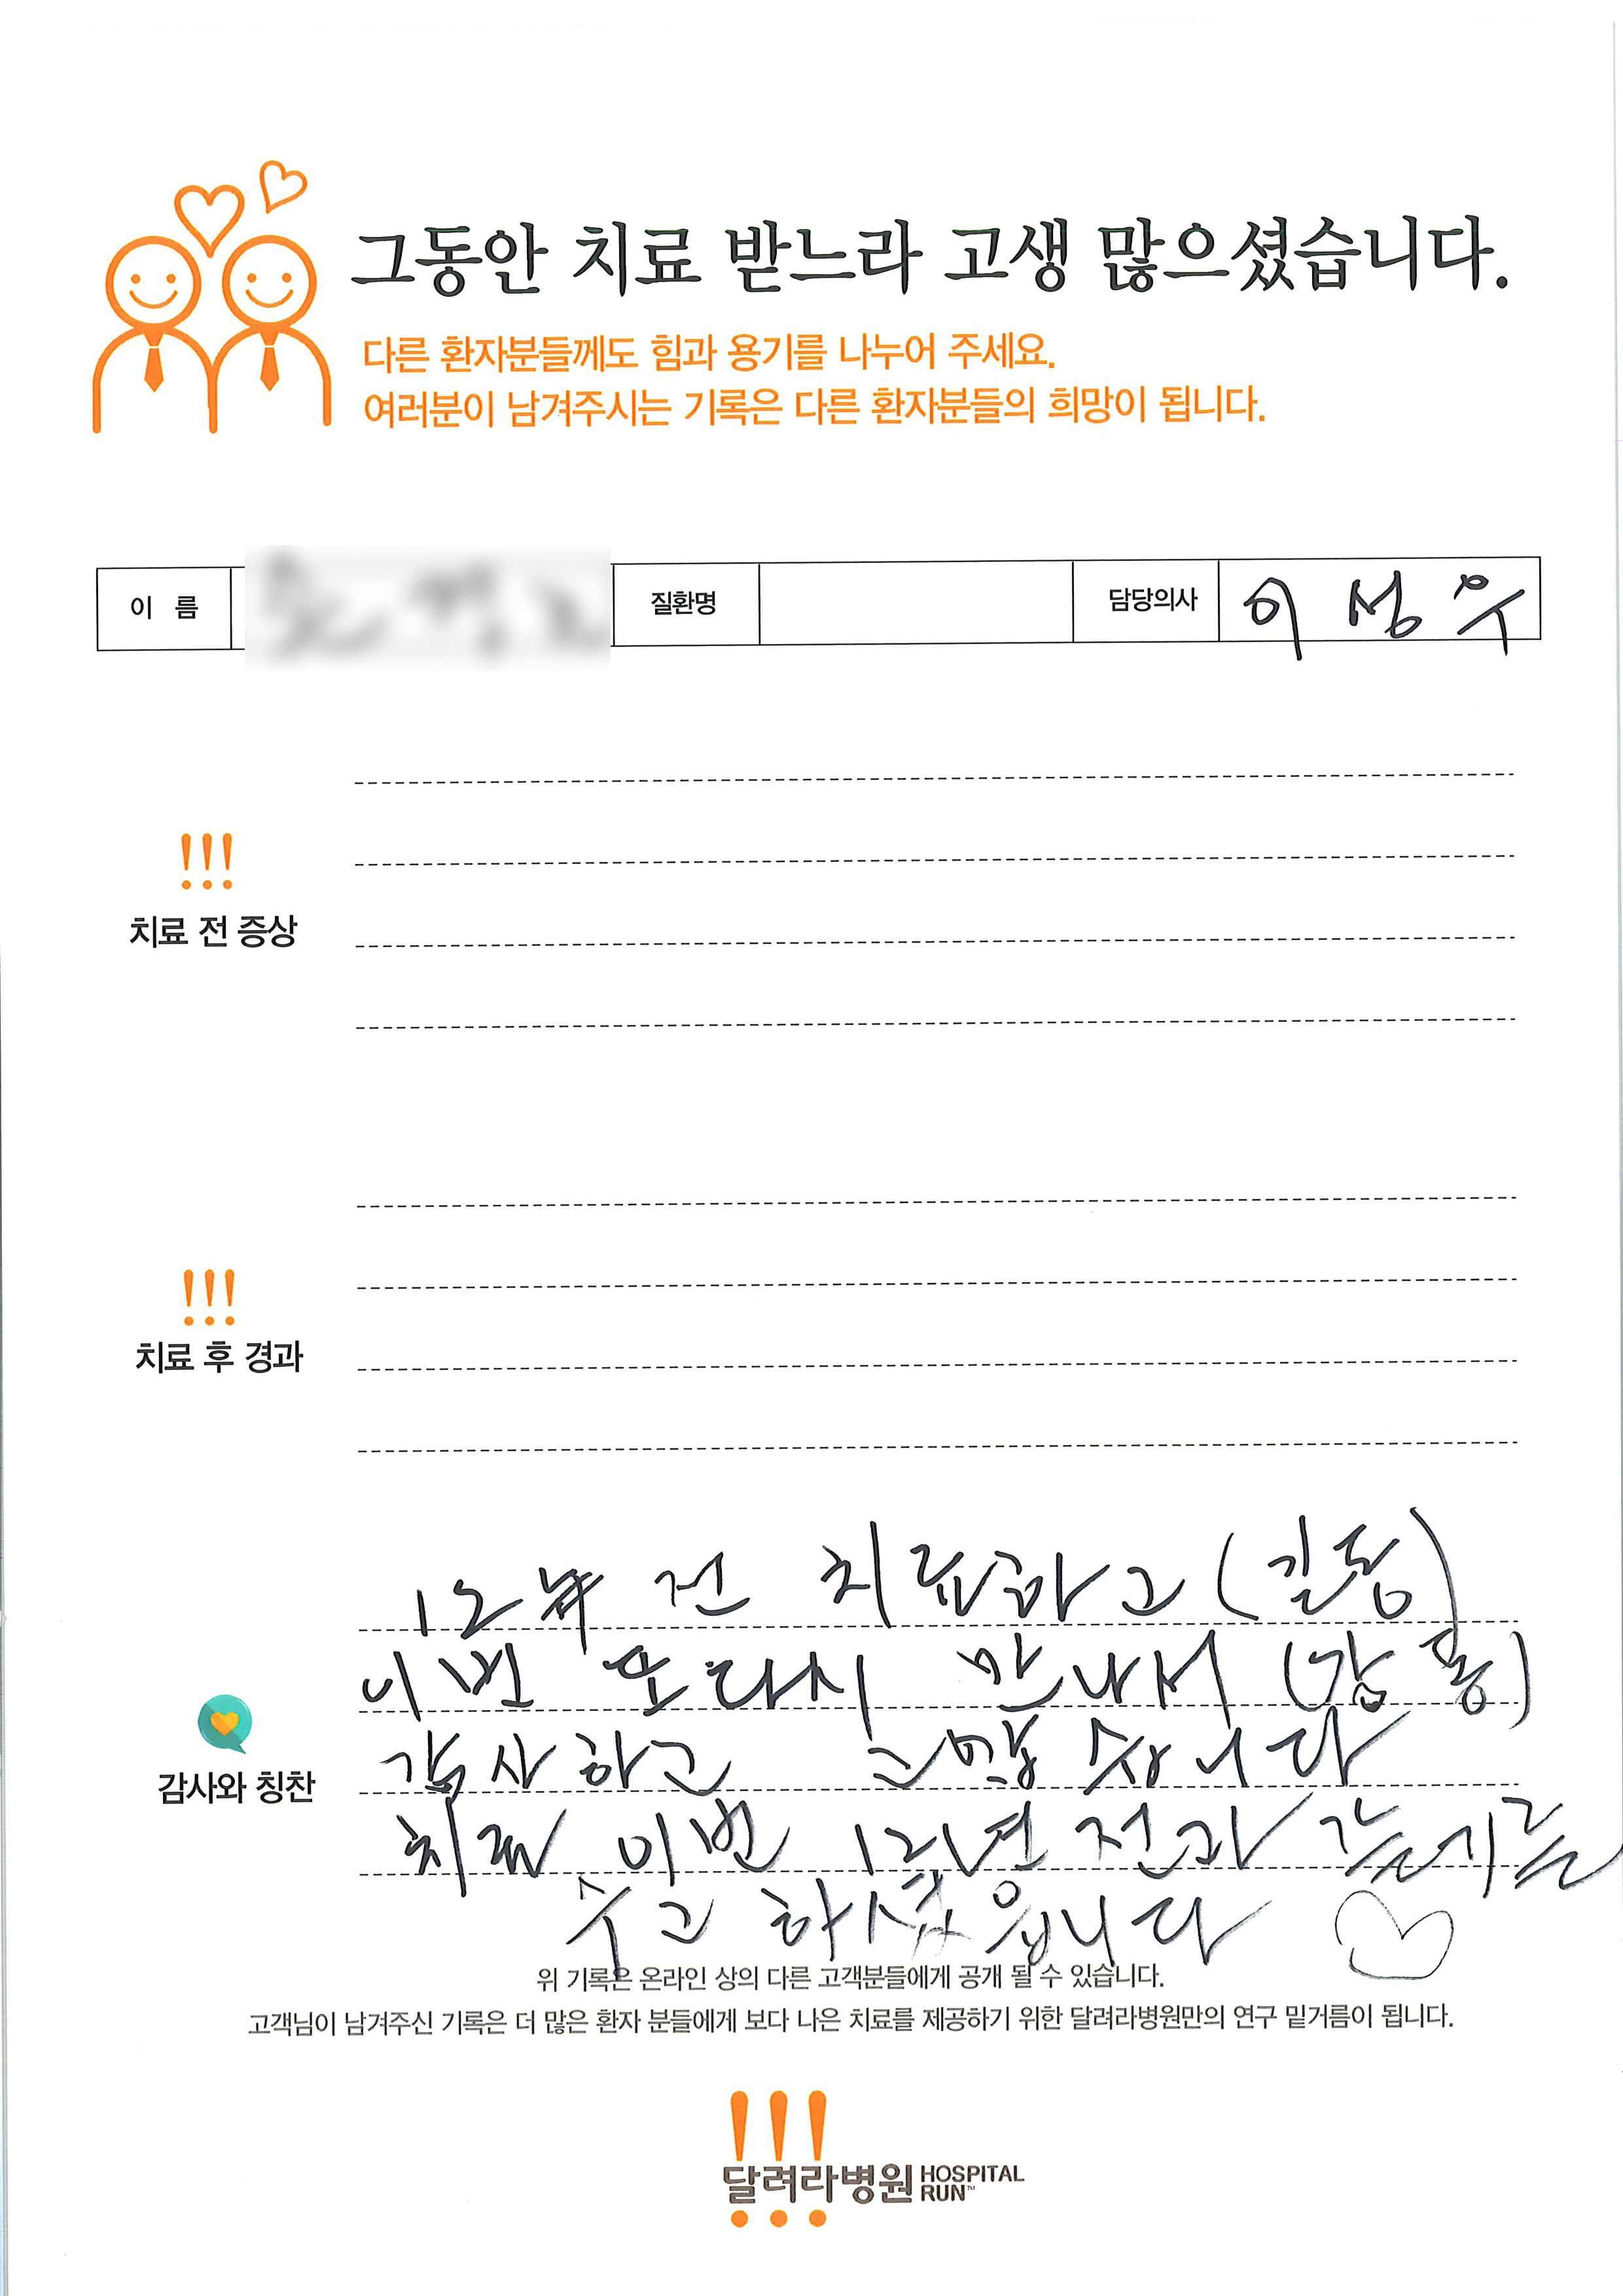 그동안 치료 받느라 고생 많으셨습니다.
다른 환자분들께도 힘과 용기를 나누어 주세요.
여러분이 남겨주시는 기록은 다른 환자분들의 희망이 됩니다.
이 름 질환명 담당의사 이성우
!!!
치료 전 증상
!!!
치료 후 경과
감사와 칭찬
12年 전 치료하고 (길동)
이번 또다시 만나서 (감동)
감사하고 고맙습니다
치료 이번 12년 전과
수고 하셨읍니다
위 기록은 온라인 상의 다른 고객분들에게 공개 될 수 있습니다.
고객님이 남겨주신 기록은 더 많은 환자 분들에게 보다 나은 치료를 제공하기 위한 달려라병원만의 연구 밑거름이 됩니다.
달려라병원 HOSPITAL RUN™